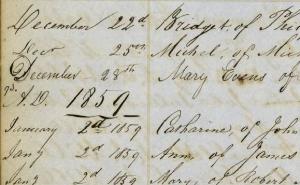 December 22d Bridget, of
Decr 25th Michel, of
December 28th Mary Evens of
A.D. 1859
January 2d 1859 Catharine, of John
Jany 2d 1859 Ann, of James
Jany 2d 1859 Mary, of Robert